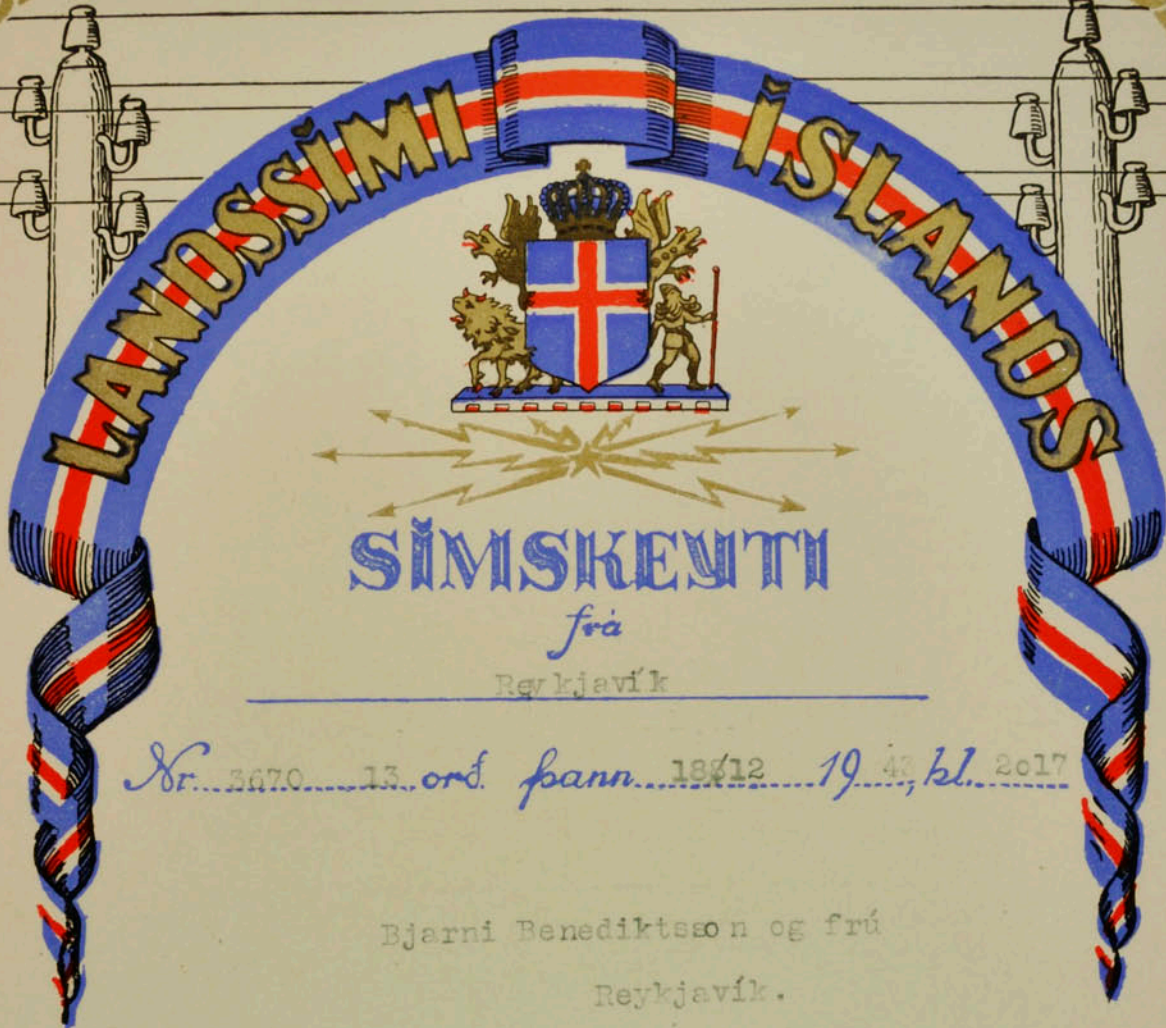 LANDSSÍMI ÍSLANDS
SÍMSKEYTI
frá
Reykjavík
Nr. 3670 13 orð. þann 18/12 19 43, kl. 2017
Bjarni Benediktsson og frú
Reykjavík.